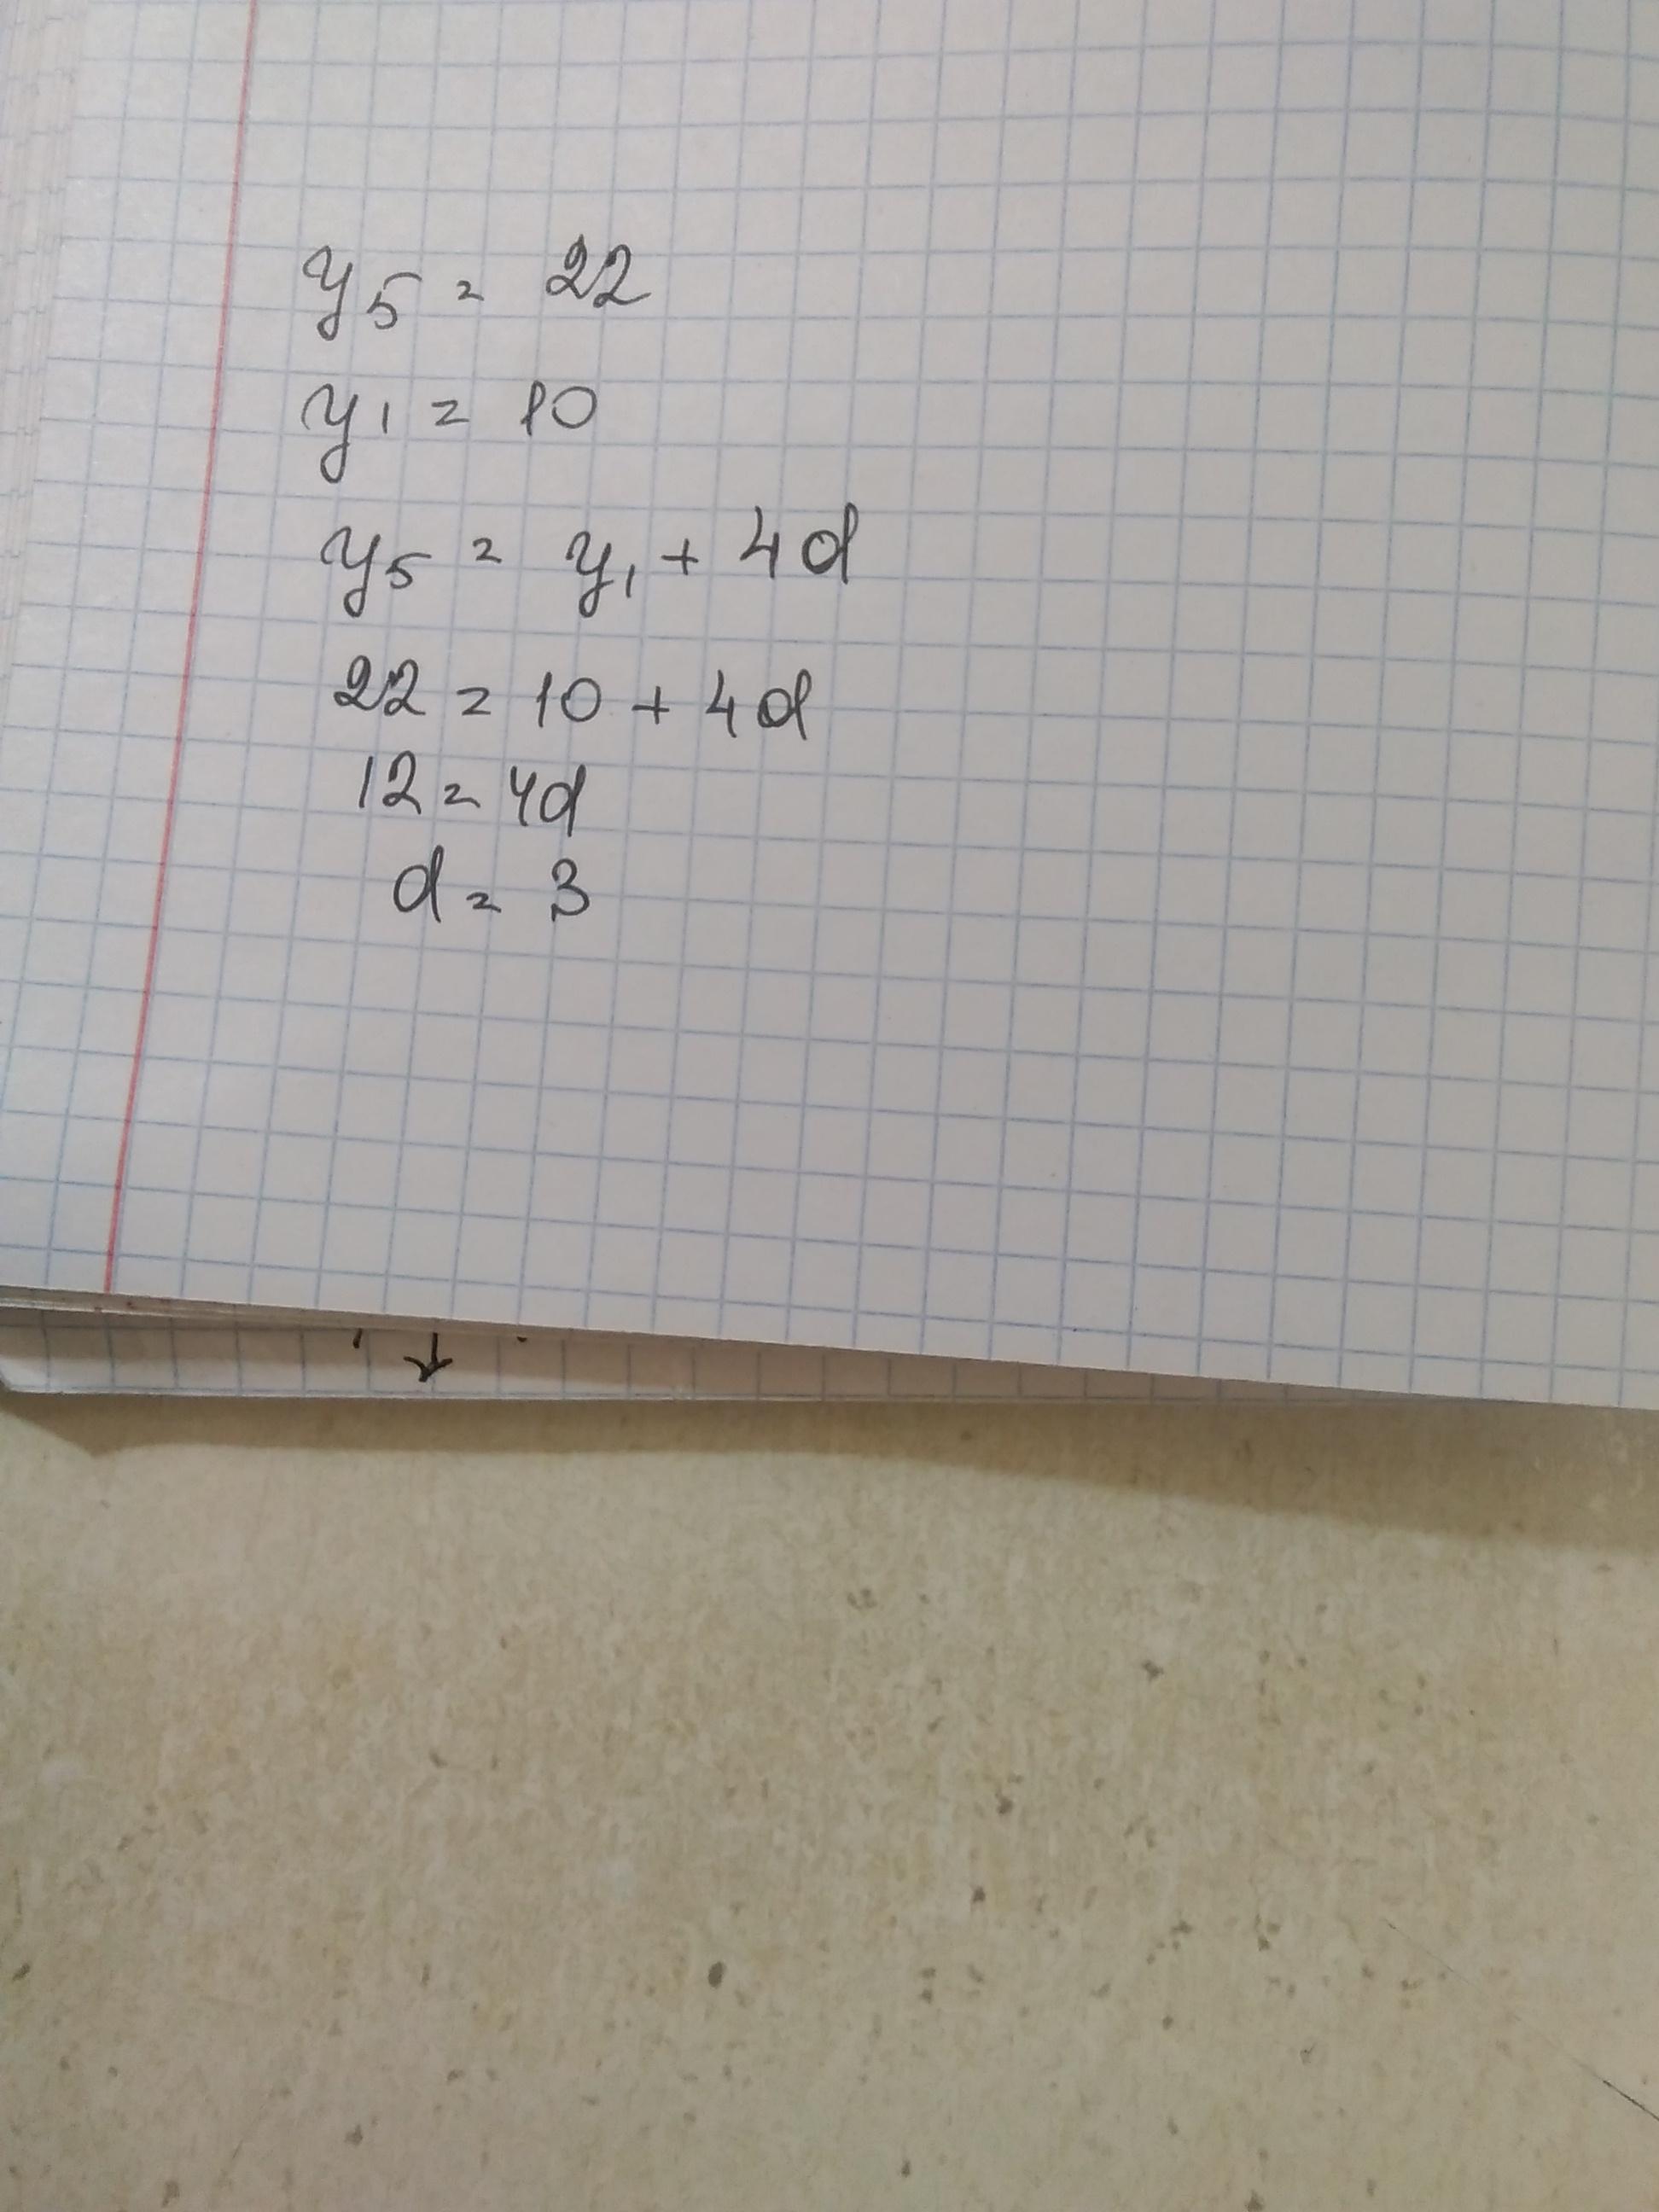 y₅ = 22
y₁ = 10
y₅ = y₁ + 4d
22 = 10 + 4d
12 = 4d
d = 3